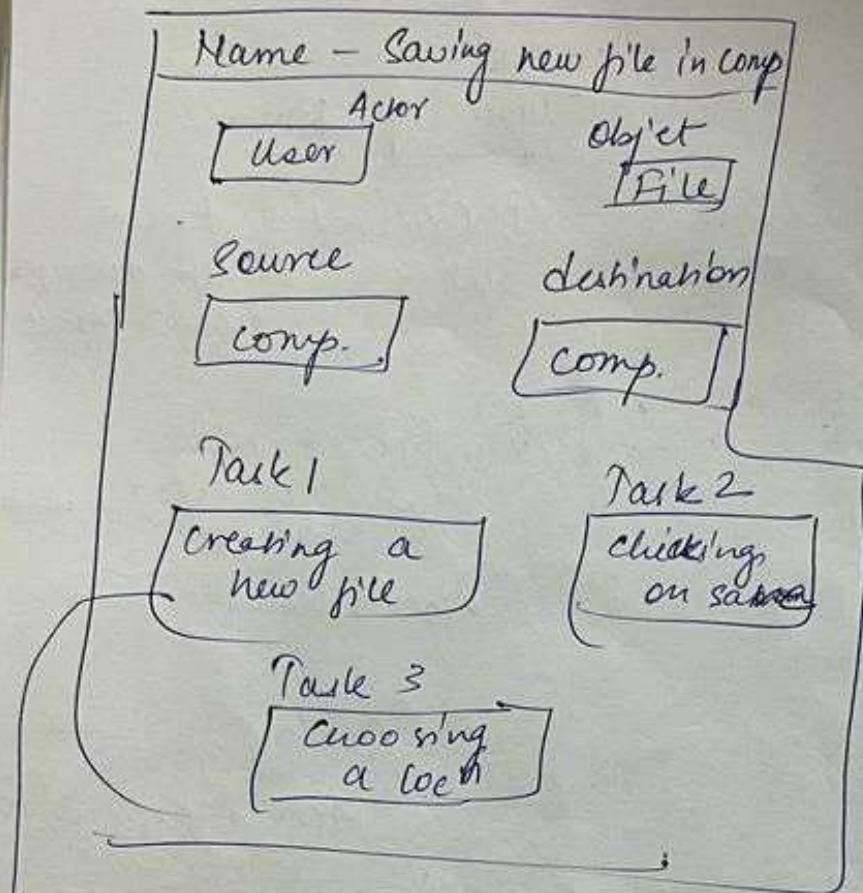 Name - Saving new file in comp
Actor
User
Objet
File
Source
destination
comp.
comp.
Task 1
Task 2
creating a
new file
clicking
on
Task 3
choosing
a locn